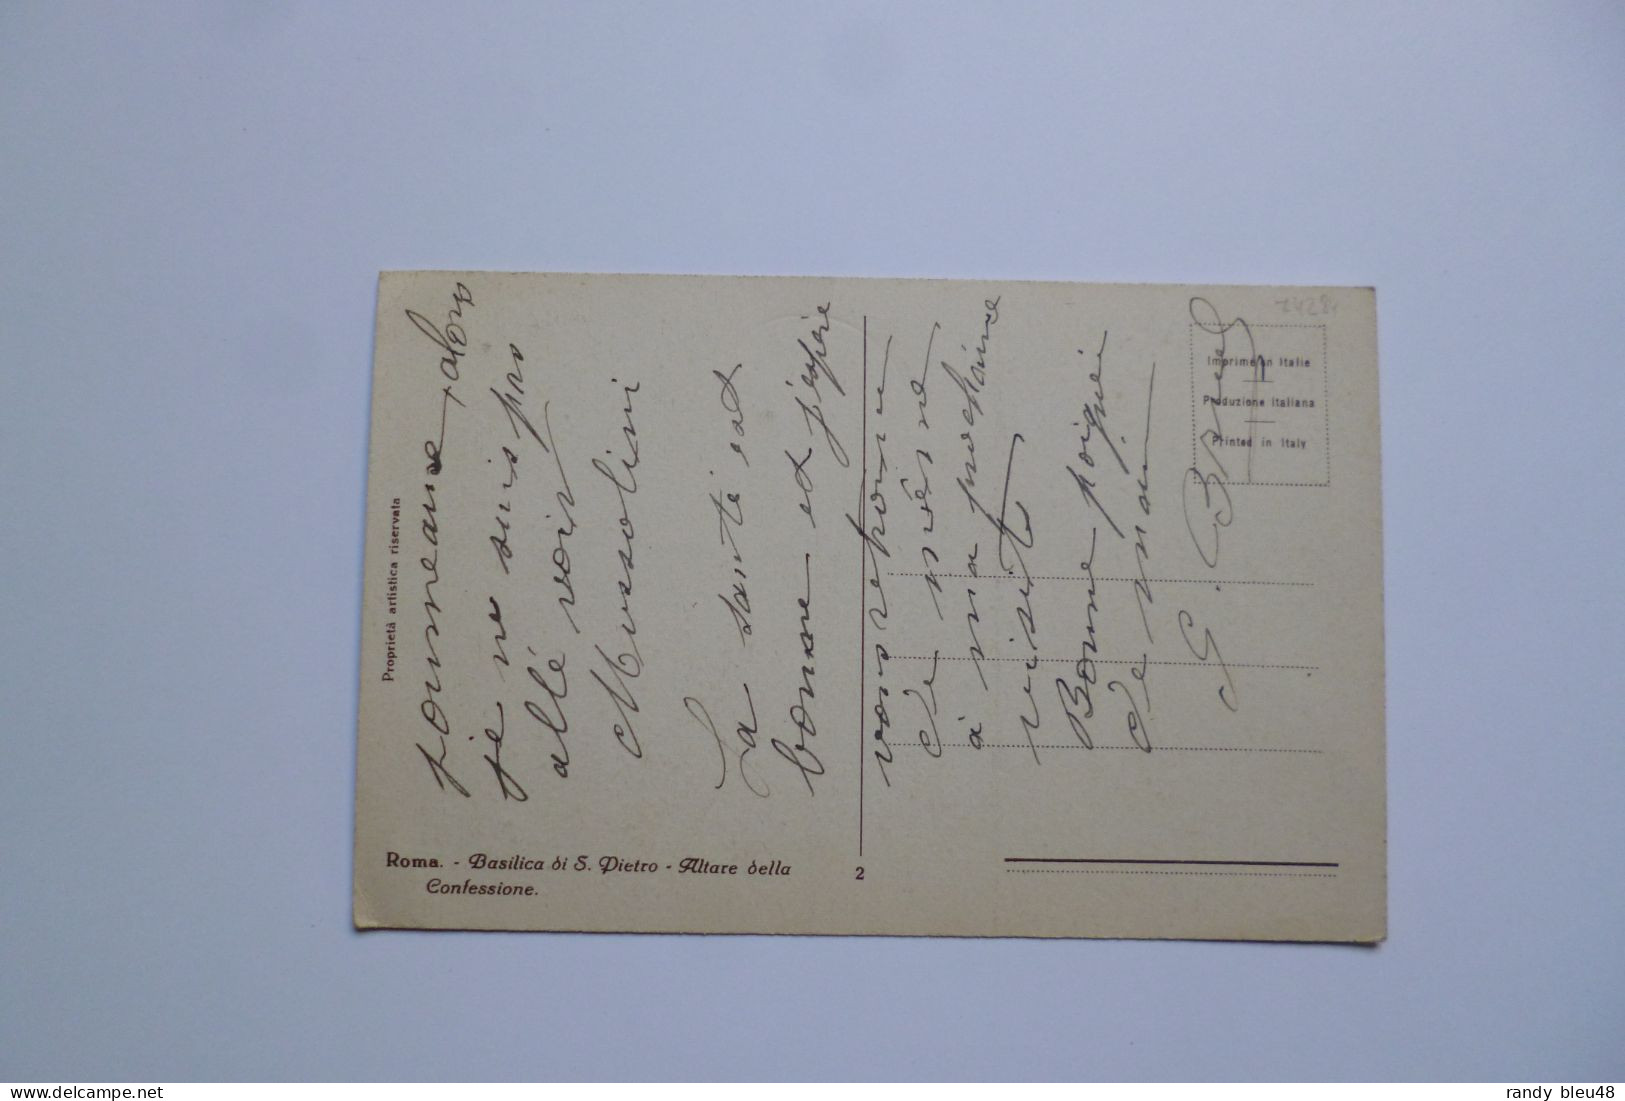 journeaux, alors
je ne suis pas
allé voir
Mussolini
La santé est
bonne et j'espère
vous retrouver
de même
à ma prochaine
visite
Bonne poignée
de main
G. Brunel
24284
Imprimé en Italie
Produzione Italiana
Printed in Italy
Proprietà artistica riservata
Roma. - Basilica di S. Pietro - Altare della
Confessione.
2
delcampe.net
randy bleu48